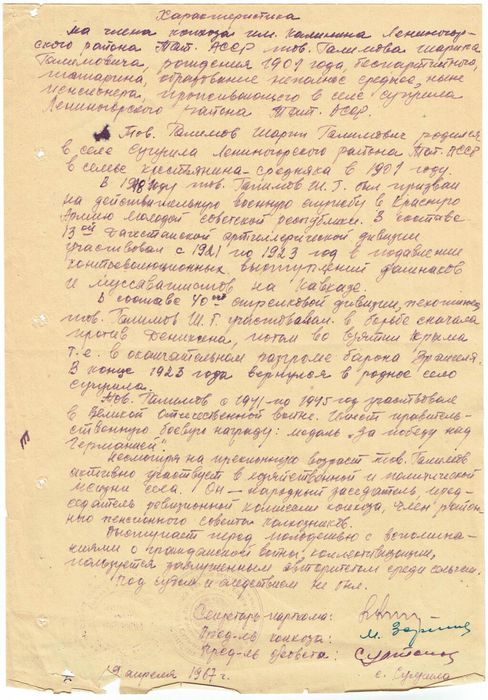 Характеристика
на члена колхоза им. Калинина Лениногор-
ского района Тат. АССР тов. Галимова Шарипа
Галимовича, рождения 1901 года, беспартийного,
татарина, образование неполное среднее, ныне
пенсионера, проживающего в селе Сугушла
Лениногорского района Тат. АССР.
Тов. Галимов Шарип Галимович родился
в селе Сугушла Лениногорского района Тат. АССР
в семье крестьянина-средняка в 1901 году.
В году тов. Галимов Ш.Г. был призван
на действительную военную службу в Красную
Армию молодой советской республики. В составе
13ой Дагестанской артиллерической дивизии
участвовал с 1921 по 1923 год в подавлении
контреволюционных выступлений дашнаков
и мусаватистов на Кавказе.
В составе 40ой стрелковой дивизии,
тов. Галимов Ш.Г. участвовал в борьбе сначала
против Деникина, потом во взятии Крыма
т.е. в окончательном разгроме барона Врангеля.
В конце 1923 года вернулся в родное село
Сугушла.
Тов. Галимов с 1941 по 1945 год участвовал
в Великой Отечественной войне. Имеет правитель-
ственную боевую награду: медаль „За победу над
Германией".
Несмотря на преклонную возраст тов. Галимов
активно участвует в хозяйственной и политической
жизни села. Он – народный заседатель, пред-
седатель ревизионной комиссии колхоза, член район-
ного пенсионного совета колхозников.
Выступает перед молодежью с воспомина-
ниями о гражданской войне, коллективизации,
пользуется заслуженным авторитетом среди сельчан.
Под судом и следствием не был.
Секретарь парткома:
Пред-ль колхоза:
Пред-ль с/совета:
апреля 1967 г.
с. Сугушла